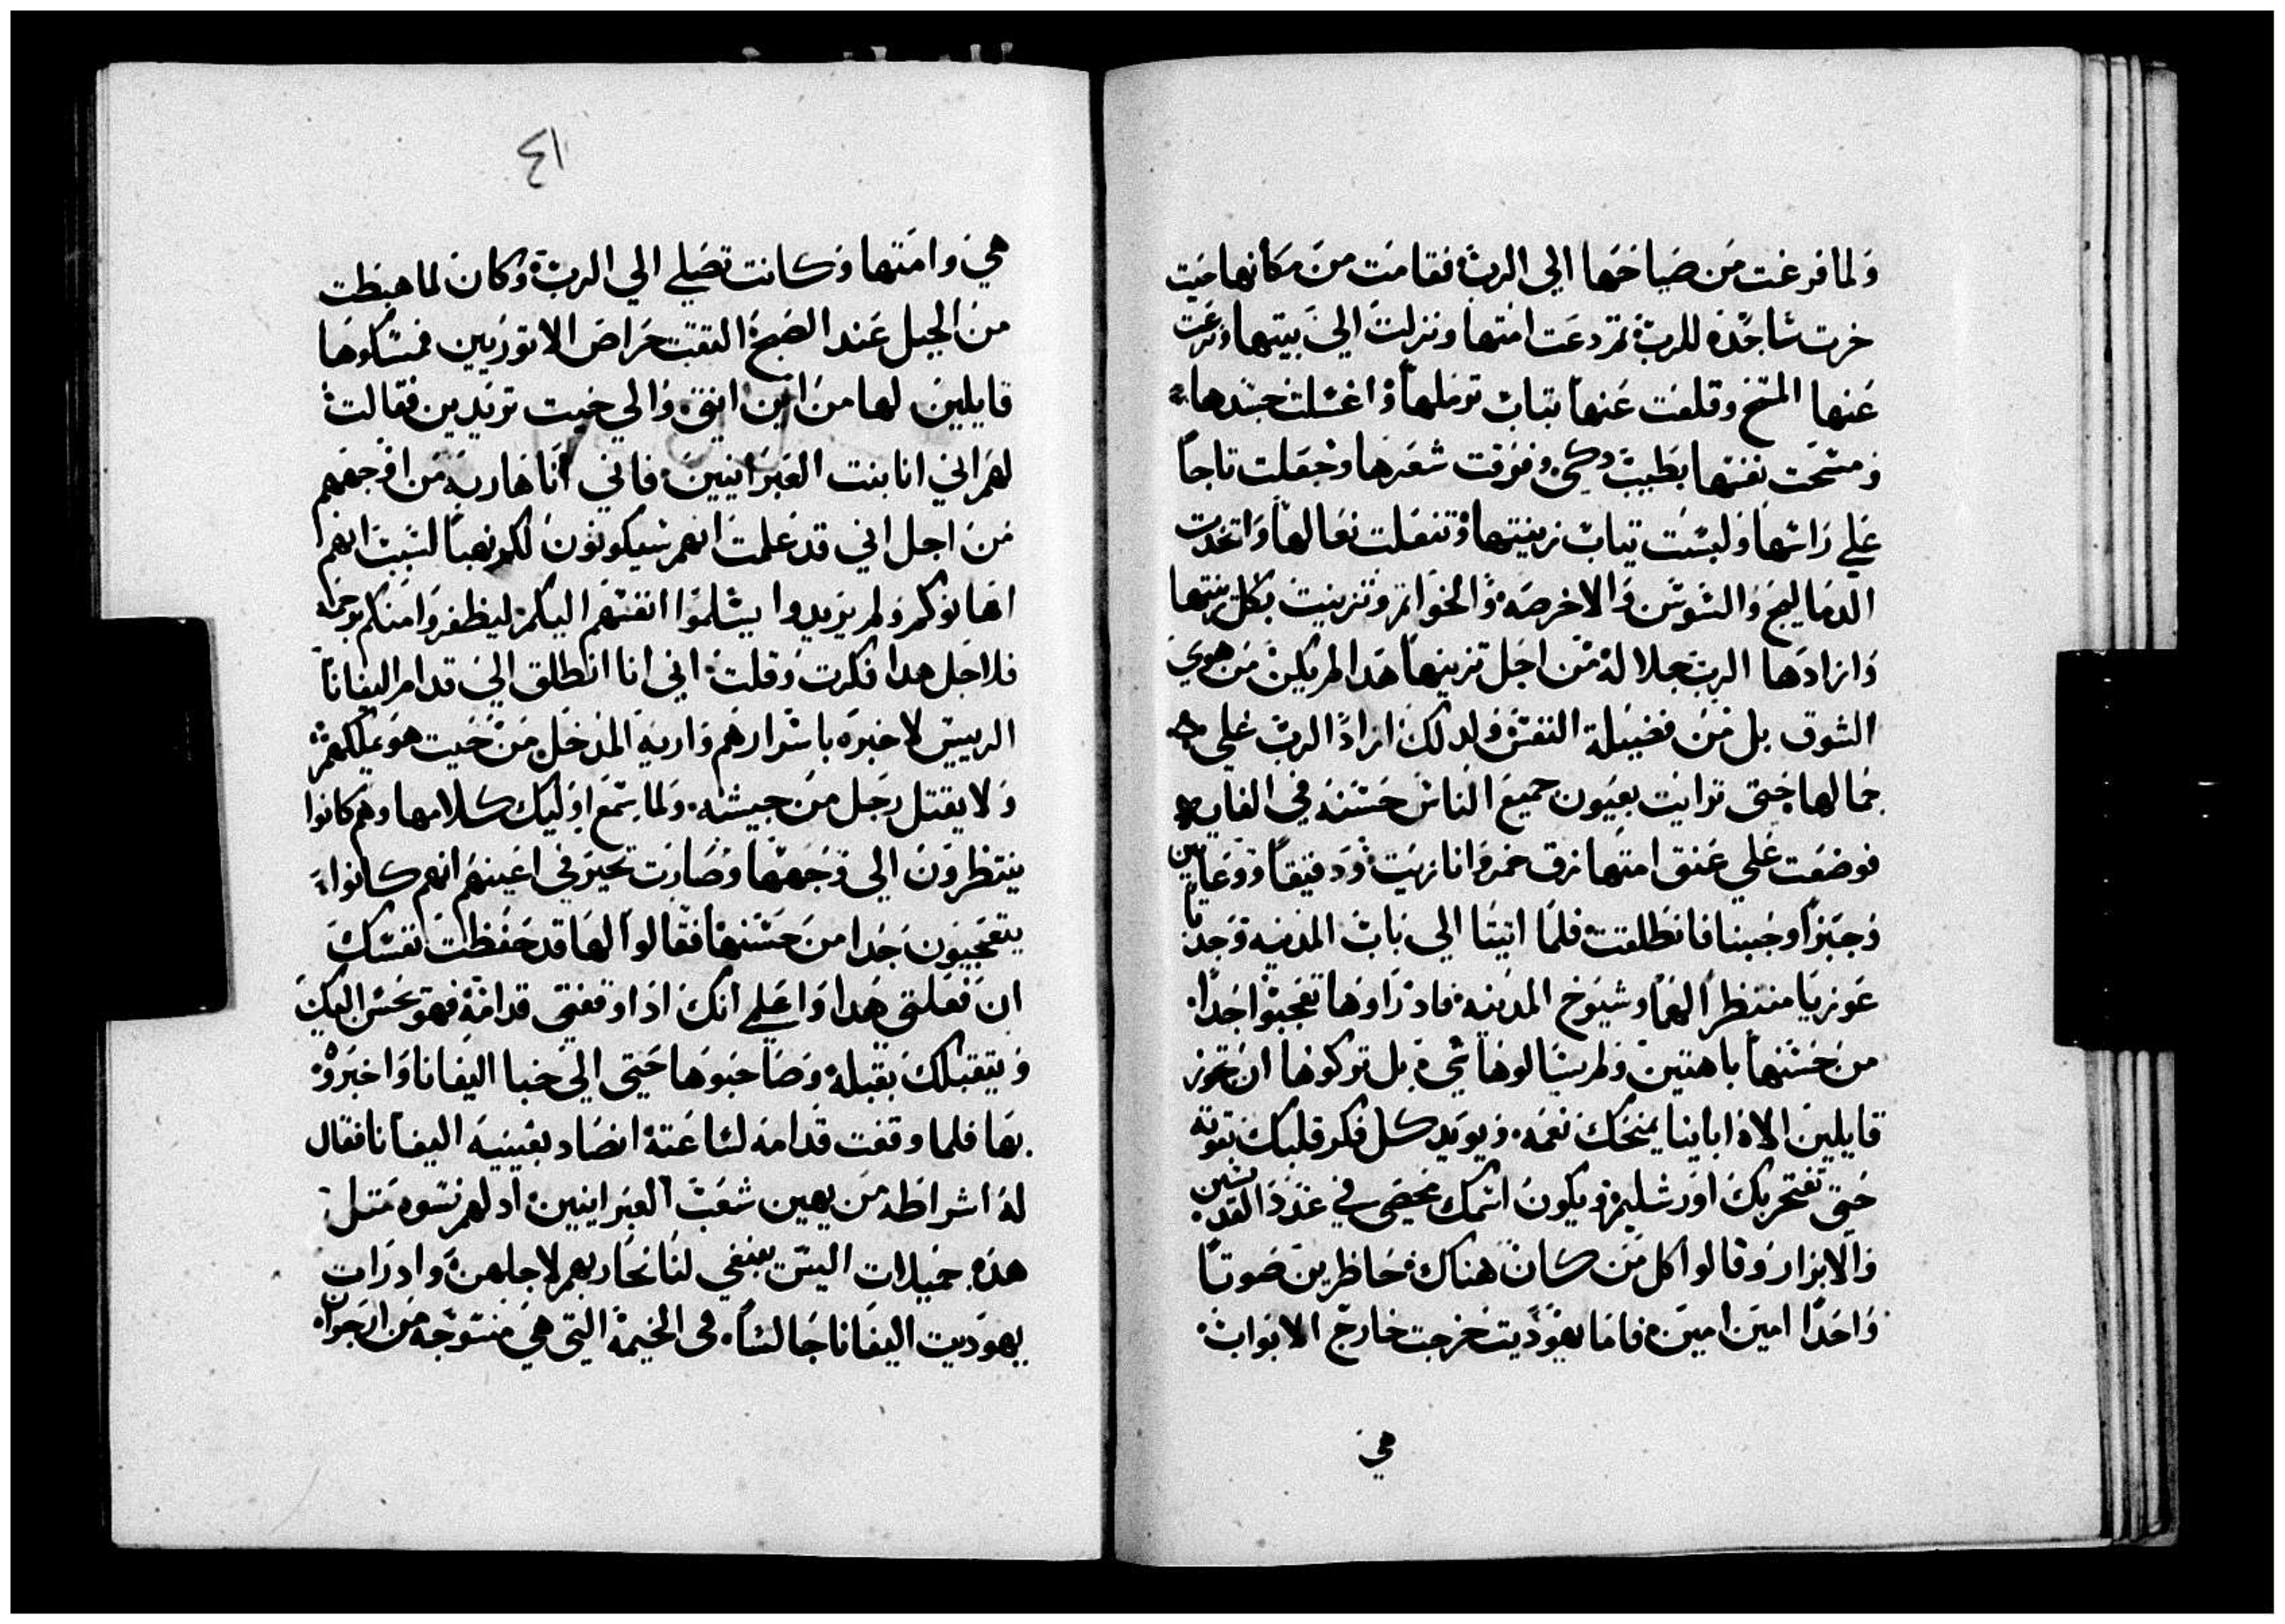 ولما فرغت من صياحها الي الرب فقامت من مكانها حيت
خرت ساجده للرب تم دعت امتها ونزلت الي بيتها ونزعت
عنها المسح وقلعت عنها تياب ترملها واغسلت جسدها
ومسحت نفسها بطيب دكي وفرقت شعرها وجعلت تاجا
علي راسها ولبست تياب زينتها وتنعلت نعالها واتخدت
الدماليج والسوسن والاخرصه والخواتم وتزينت بكل زينتها
وازادها الرب جلالة من اجل تزينها هدا لم يكن من هوي
الشوق بل من فضيلة النفس ولدلك ازاد الرب علي
جمالها حتي ترايت بعيون جميع الناس حسنه في الغايه
فوضعت علي عنق امتها زق خمر وانا زيت ودقيقا ووعا تين
وخبزا وجبنا فانطلقت فلما اتيتا الي باب المدينه وجدتا
عوزيا منتظرا لهما وشيوخ المدينه فاد راوها تعجبوا جدا
من حسنها باهتين ولم يسالوها شي بل تركوها ان تجوز
قايلين الاه اباينا يمنحك نعمه ويويد كل فكر قلبك بقوته
حتي تفتخر بك اورشليم ويكون اسمك يحصي في عدد القديسين
والابرار وقالوا كل من كان هناك حاظرين صوتا
واحدا امين امين فاما يهوديت خرجت خارج الابواب
هي
٤١
هي وامتها وكانت تصلي الي الرب وكان لما هبطت
من الجبل عند الصبح التقت حراص الاتوريين فمسكوها
قايلين لها من اين انتي والي حيت تريدين فقالت
لهم اني انا بنت العبرانيين فاني انا هاربه من اوجههم
من اجل اني قد علمت انهم سيكونون لكم نهبا لسبب انهم
اهانوكم ولم يريدوا يسلموا انفسهم اليكم ليظفروا منكم برحمه
فلاجل هدا فكرت وقلت اني انا انطلق الي قدام اليفانا
الرييس لاخبره باسرارهم واريه المدخل من حيت هو يملكهم
ولا يقتل رجل من جيشه ولما سمع اوليك كلامها وهم كانوا
ينتظرون الي وجهها وصارت تحير في اعينهم انهم كانوا
يتعجبون جدا من حسنها فقالوا لها قد حفظت نفسك
ان فعلتي هدا واعلمي انك ادا وقفتي قدامه فهو يحسن اليك
ويتقبلك بقبله وصاحبوها حتي الي خبا اليفانا واخبروه
بها فلما وقفت قدامه لساعته انصاد بعينيه اليفانا فقال
له اشراطه من يهين شعب العبرانيين اد لهم نسوه متل
هده جميلات اليس ينبغي لنا نحاربهم لاجلهن واد رات
يهوديت اليفانا جالسا في الخيمة التي هي منسوجه من ارجوان